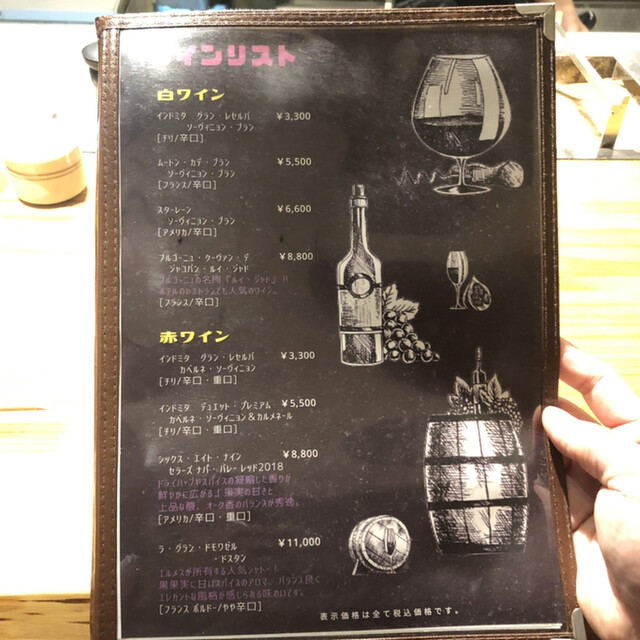 インリスト
白ワイン
インドミタ グラン・レセルバ ¥3,300
ソーヴィニョン・ブラン
[チリ/辛口]
ムートン・カデ・ブラン ¥5,500
ソーヴィニョン・ブラン
[フランス/辛口]
スターレーン ¥6,600
ソーヴィニョン・ブラン
[アメリカ/辛口]
ブルゴーニュ・クーヴァン・デ ¥8,800
ジャコバン・ルイ・ジャド
ブルゴーニュの名門『ルイ・ジャド』!!
ホテルのレストランでも人気のワイン。
[フランス/辛口]
赤ワイン
インドミタ グラン・レセルバ ¥3,300
カベルネ・ソーヴィニョン
[チリ/辛口・重口]
インドミタ デュエット・プレミアム ¥5,500
カベルネ・ソーヴィニョン&カルメネール
[チリ/辛口・重口]
シックス・エイト・ナイン ¥8,800
セラーズ ナパ・バレー レッド2018
ドライハーブやスパイスの凝縮した香りが
鮮やかに広がる♪果実の甘さと
上品な酸、オーク香のバランスが秀逸。
[アメリカ/辛口・重口]
ラ・グラン・ドモワゼル ¥11,000
・ドスタン
エルメスが所有する人気シャトー!
黒果実に甘いスパイスのアロマ、バランス良く
エレガントな風格が感じられる味わいです。
[フランス ボルドー/やや辛口]
表示価格は全て税込価格です。